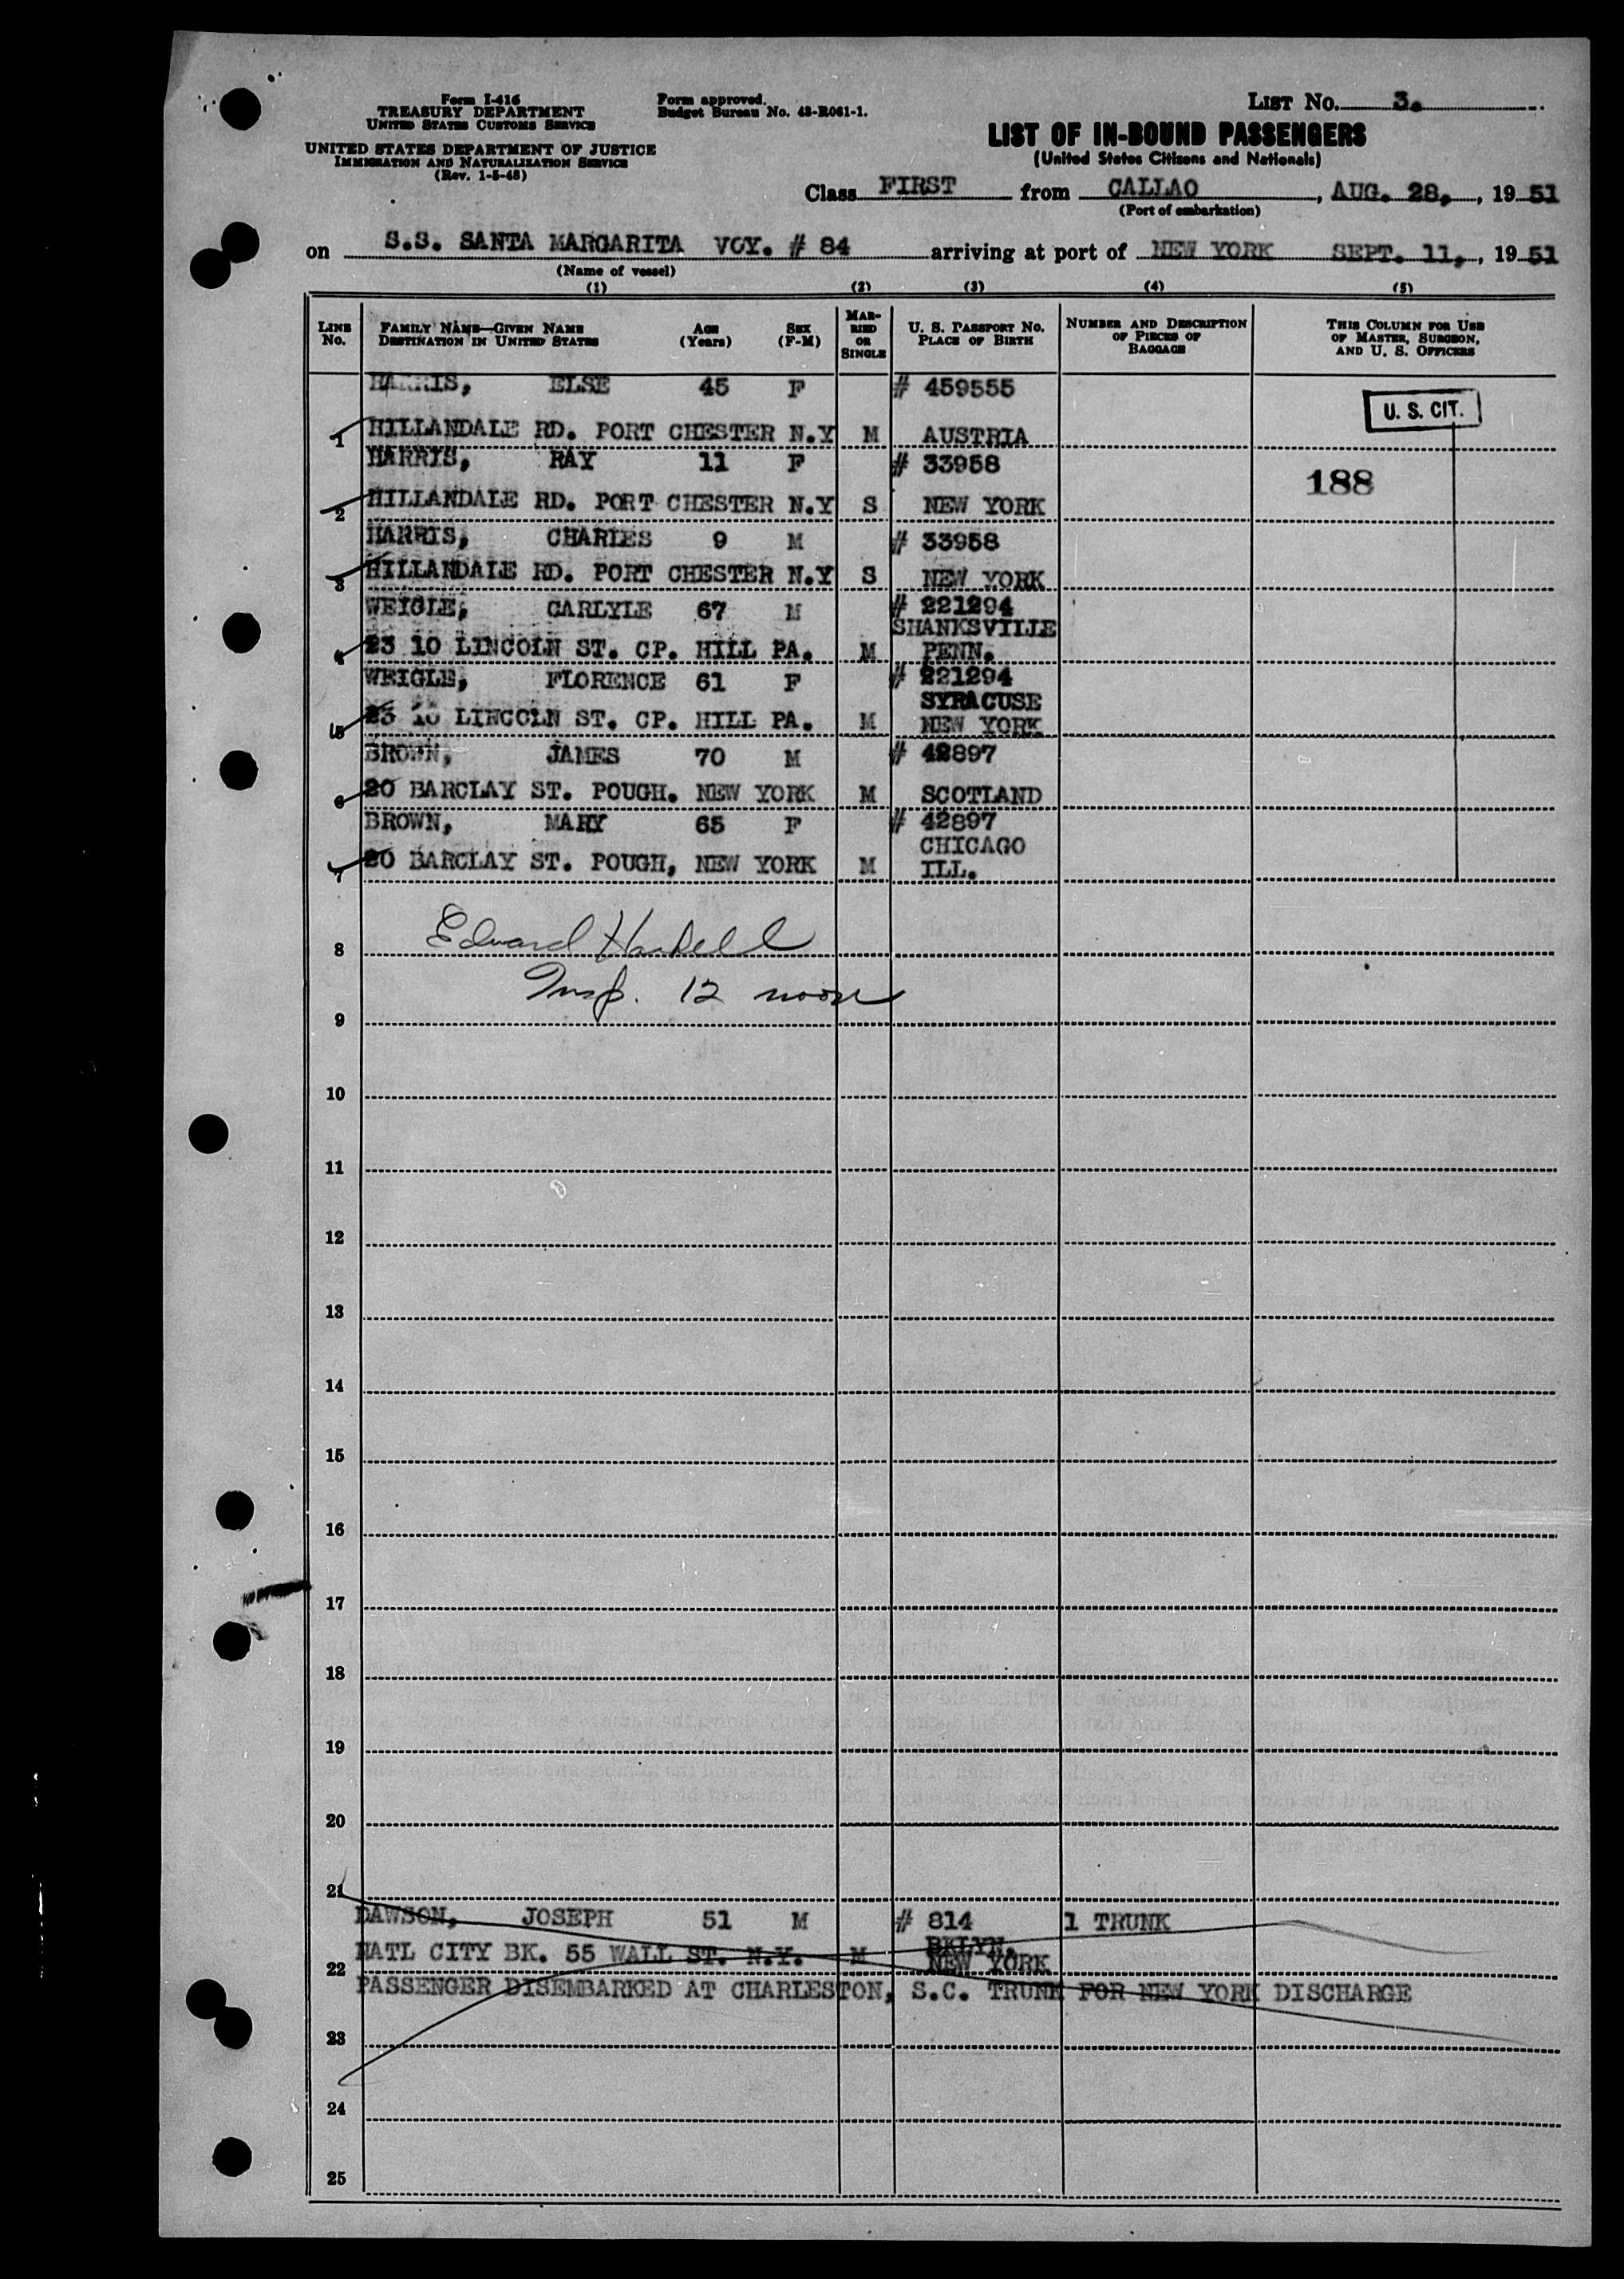 Form I-416
TREASURY DEPARTMENT
UNITED STATES CUSTOMS SERVICE
UNITED STATES DEPARTMENT OF JUSTICE
IMMIGRATION AND NATURALIZATION SERVICE
(Rev. 1-5-48)
Form approved.
Budget Bureau No. 43-R061-1.
LIST NO. 3.
LIST OF IN-BOUND PASSENGERS
(United States Citizens and Nationals)
Class FIRST from CALLAO, AUG. 28, 1951
(Port of embarkation)
on S.S. SANTA MARGARITA VOY. # 84 arriving at port of NEW YORK SEPT. 11, 1951
(Name of vessel)
(1) (2) (3) (4) (5)
LINE NO. FAMILY NAME—GIVEN NAME DESTINATION IN UNITED STATES AGE (Years) SEX (F-M) MARRIED OR SINGLE U. S. PASSPORT NO. PLACE OF BIRTH NUMBER AND DESCRIPTION OF PIECES OF BAGGAGE THIS COLUMN FOR USE OF MASTER, SURGEON, AND U. S. OFFICERS
HARRIS, ELSE 45 F # 459555
U. S. CIT.
1 HILLANDALE RD. PORT CHESTER N.Y M AUSTRIA
HARRIS, RAY 11 F # 33958
188
2 HILLANDALE RD. PORT CHESTER N.Y S NEW YORK
HARRIS, CHARLES 9 M # 33958
3 HILLANDALE RD. PORT CHESTER N.Y S NEW YORK
WEIGLE, CARLYLE 67 M # 221294
SHANKSVILLE
4 23 10 LINCOLN ST. CP. HILL PA. M PENN.
WEIGLE, FLORENCE 61 F # 221294
SYRACUSE
5 23 10 LINCOLN ST. CP. HILL PA. M NEW YORK
BROWN, JAMES 70 M # 42897
6 20 BARCLAY ST. POUGH. NEW YORK M SCOTLAND
BROWN, MARY 65 F # 42897
CHICAGO
7 20 BARCLAY ST. POUGH, NEW YORK M ILL.
8 Edward Haskell
Insp. 12 noon
9
10
11
12
13
14
15
16
17
18
19
20
21
DAWSON, JOSEPH 51 M # 814 1 TRUNK
BKLYN.
22 NATL CITY BK. 55 WALL ST. N.Y. M NEW YORK
PASSENGER DISEMBARKED AT CHARLESTON, S.C. TRUNK FOR NEW YORK DISCHARGE
23
24
25